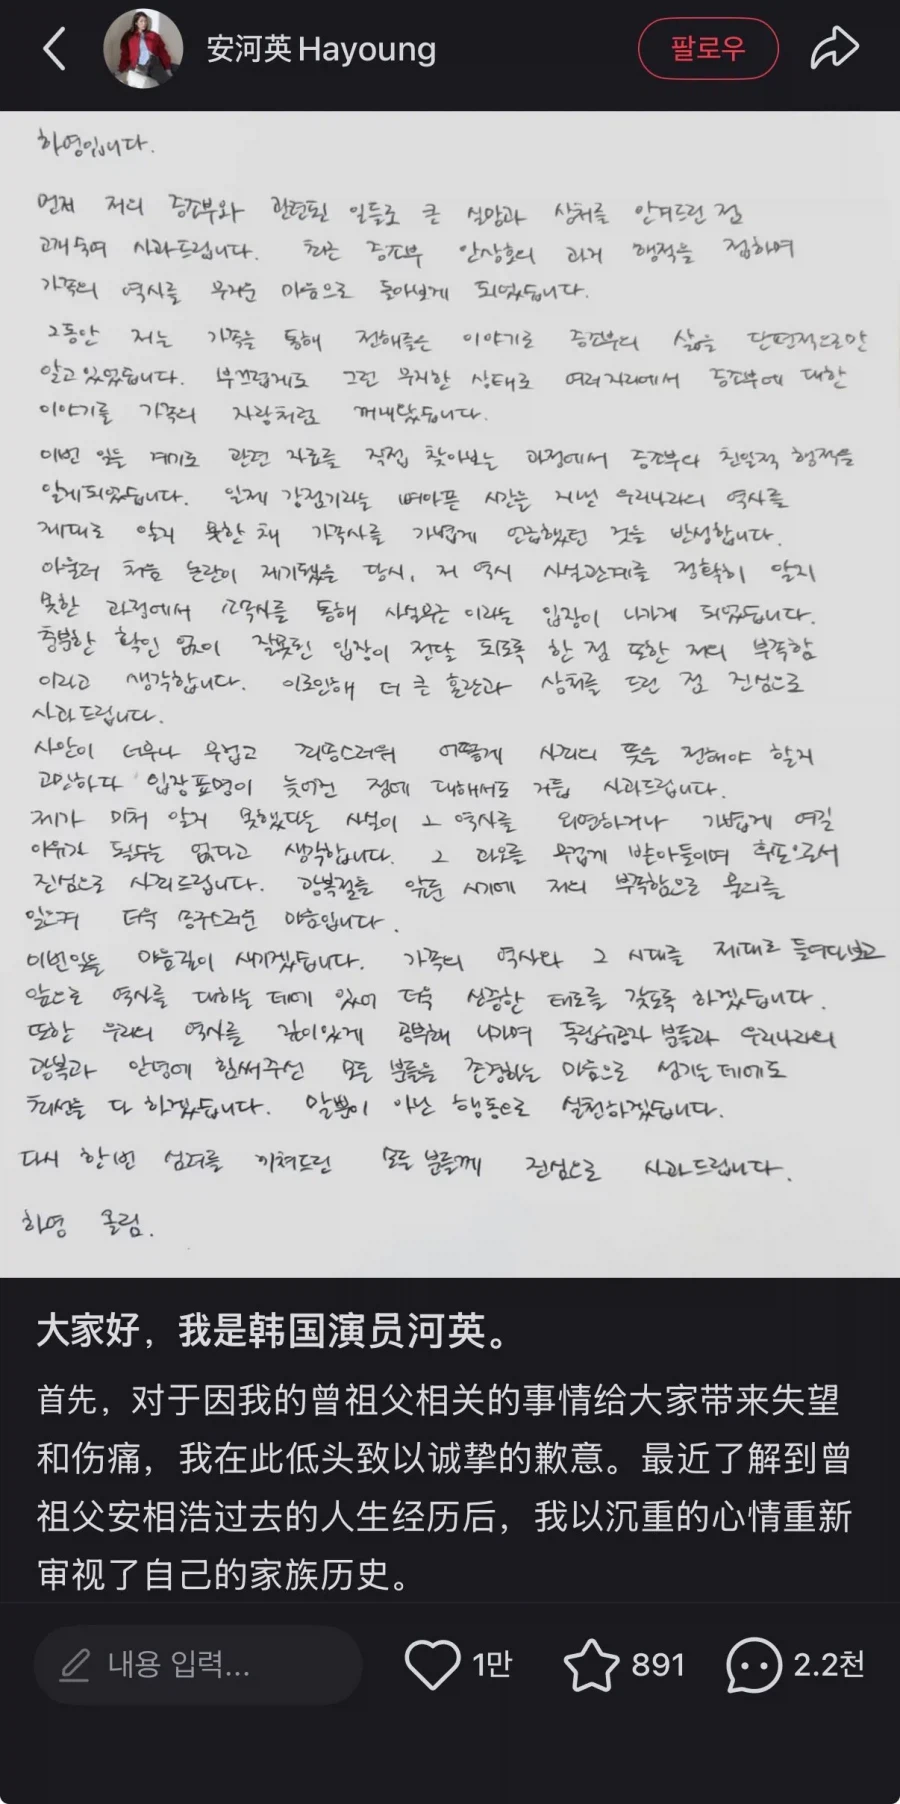 安河英Hayoung
팔로우
하영입니다.
먼저 저의 증조부와 관련된 일들로 큰 실망과 상처를 안겨드린 점
고개 숙여 사과드립니다. 최근 증조부 안상호의 과거 행적을 접하며
가족의 역사를 무거운 마음으로 돌아보게 되었습니다.
그동안 저는 가족을 통해 전해들은 이야기로 증조부의 삶을 단편적으로만
알고 있었습니다. 부끄럽게도 그런 무지한 상태로 여러 자리에서 증조부에 대한
이야기를 가족의 자랑처럼 꺼내왔습니다.
이번 일을 계기로 관련 자료를 직접 찾아보는 과정에서 증조부의 친일적 행적을
알게되었습니다. 일제 강점기라는 뼈아픈 시간을 지난 우리나라의 역사를
제대로 알지 못한 채 가족사를 가볍게 언급했던 것을 반성합니다.
아울러 처음 논란이 제기됐을 당시, 저 역시 사실관계를 정확히 알지
못한 과정에서 소속사를 통해 사실무근 이라는 입장이 나가게 되었습니다.
충분한 확인 없이 잘못된 입장이 전달 되도록 한 점 또한 저의 부족함
이라고 생각합니다. 이로인해 더 큰 혼란과 상처를 드린 점 진심으로
사과드립니다.
사안이 너무나 무겁고 죄송스러워 어떻게 사죄의 뜻을 전해야 할지
고민하다 입장표명이 늦어진 점에 대해서도 거듭 사과드립니다.
제가 미처 알지 못했다는 사실이 그 역사를 외면하거나 가볍게 여길
이유가 될수는 없다고 생각합니다. 그 과오를 무겁게 받아들이며 후손으로서
진심으로 사죄드립니다. 광복절을 앞둔 시기에 저의 부족함으로 물의를
일으켜 더욱 송구스러운 마음입니다.
이번일을 마음깊이 새기겠습니다. 가족의 역사와 그 시대를 제대로 들여다보고
앞으로 역사를 대하는 데에 있어 더욱 신중한 태도를 갖도록 하겠습니다.
또한 우리의 역사를 깊이있게 공부해 나가며 독립유공자 분들과 우리나라의
광복과 안녕에 힘써주신 모든 분들을 존경하는 마음으로 섬기는 데에도
최선을 다 하겠습니다. 말뿐이 아닌 행동으로 실천하겠습니다.
다시 한번 심려를 끼쳐드린 모든 분들께 진심으로 사과드립니다.
하영 올림.
大家好，我是韩国演员河英。
首先，对于因我的曾祖父相关的事情给大家带来失望
和伤痛，我在此低头致以诚挚的歉意。最近了解到曾
祖父安相浩过去的人生经历后，我以沉重的心情重新
审视了自己的家族历史。
내용 입력...
1만
891
2.2천